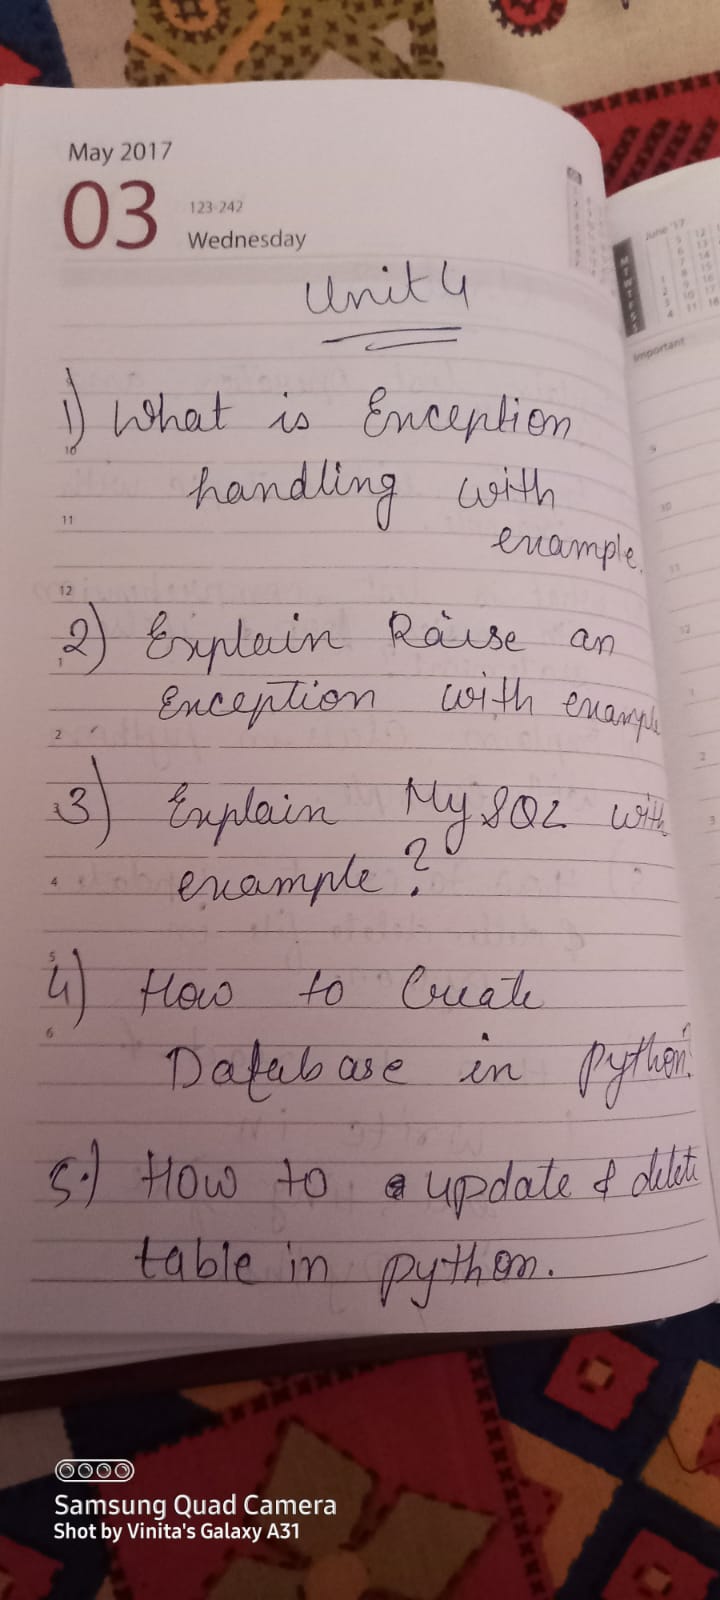 May 2017
03
123-242
Wednesday
Unit 4
1) What is Exception
handling with
example.
2) Explain Raise an
Exception with example
3) Explain MySQL with
example ?
4) How to Create
Database in python?
5.) How to update & delete
table in python.
10
11
12
1
2
3
4
5
6
June '17
M
T
W
T
F
S
S
Important
9
10
11
12
1
2
3
Samsung Quad Camera
Shot by Vinita's Galaxy A31